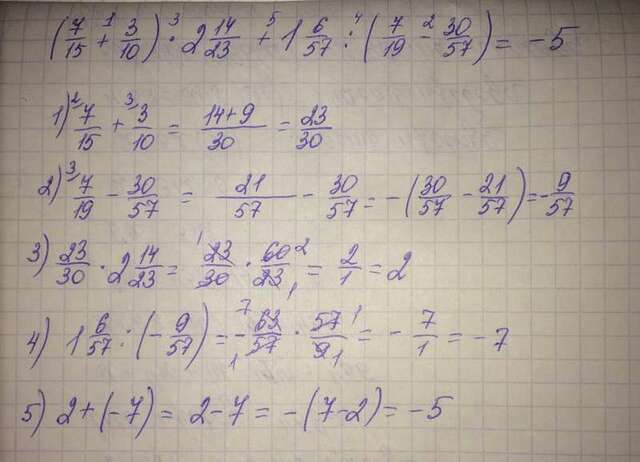 (7/15 +¹ 3/10) ·³ 2 14/23 +⁵ 1 6/57 :⁴ (7/19 -² 30/57) = -5
1) ²7/15 + ³3/10 = 14+9/30 = 23/30
2) ³7/19 - 30/57 = 21/57 - 30/57 = -(30/57 - 21/57) = -9/57
3) 23/30 · 2 14/23 = ¹23/30 · 60²/23₁ = 2/1 = 2
4) 1 6/57 : (-9/57) = -⁷63/₁57 · 57¹/9₁ = -7/1 = -7
5) 2+(-7) = 2-7 = -(7-2) = -5